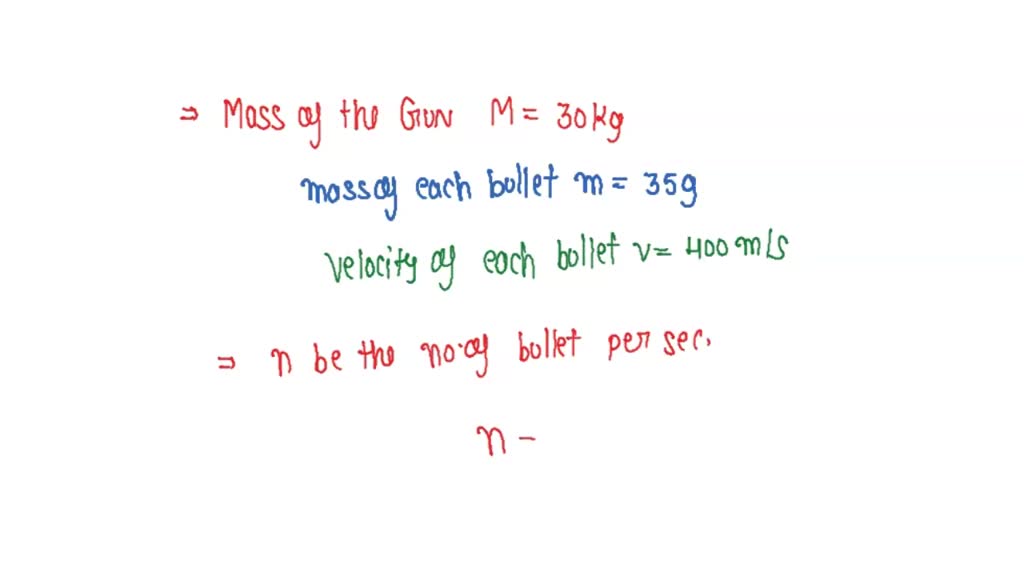 ⇒ Mass of the Gun M = 30kg
mass of each bullet m = 35g
velocity of each bullet v = 400 m/s
⇒ n be the no. of bullet per sec.
n -